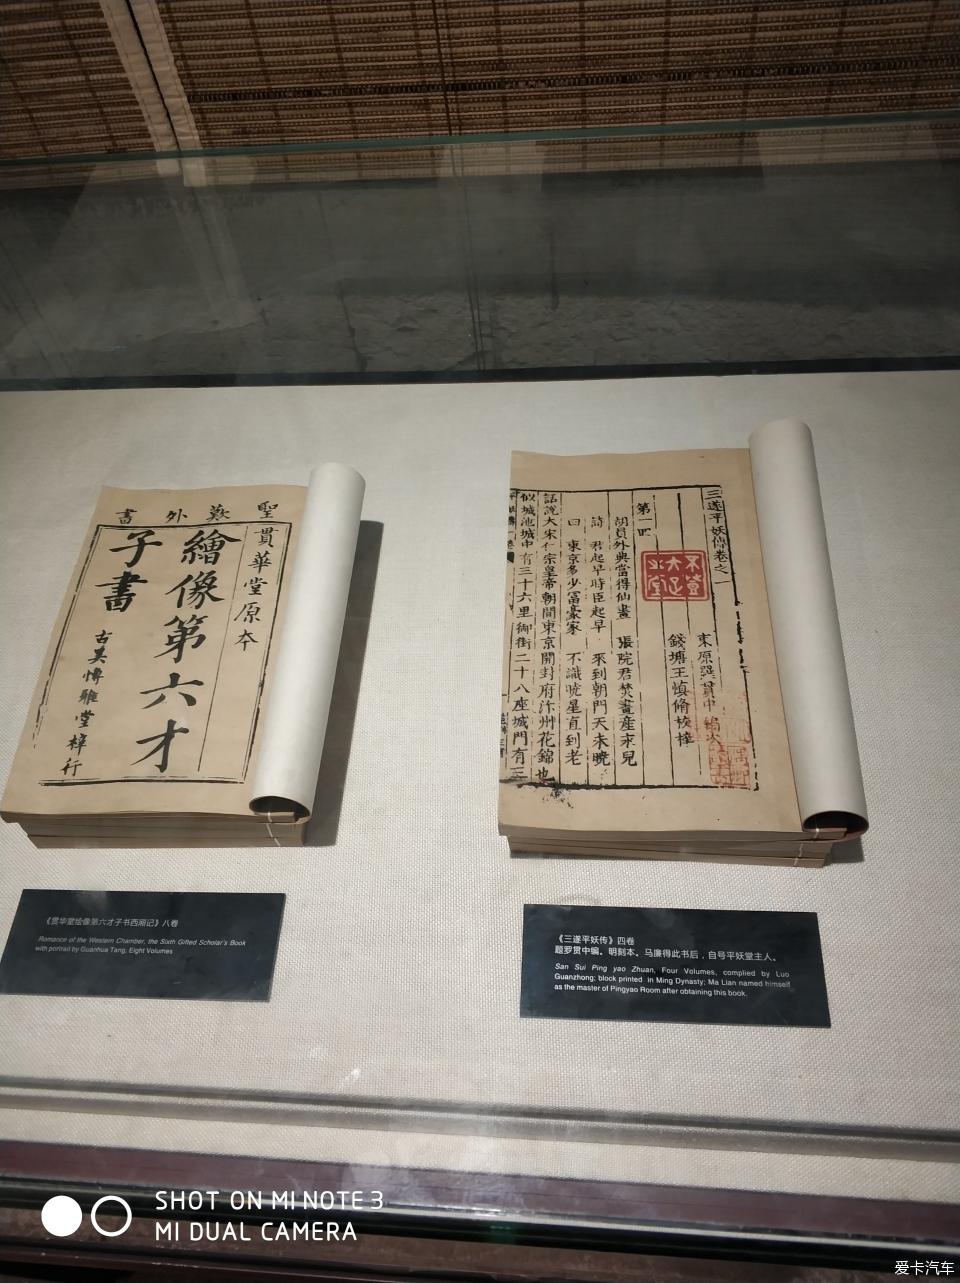 聖歎外書
貫華堂原本
繪像第六才
子書
古吳博雅堂梓行
三遂平妖傳卷之一
東原羅貫中編次
錢塘王慎脩校梓
不登大
之堂
第一回
胡員外典當得仙畫 張院君焚畫產永兒
詩 君起早時臣起早 來到朝門天未曉
曰 東京多少富豪家 不識曉星直到老
話說大宋仁宗皇帝朝間東京開封府汴州花錦也
似城池城中有三十六里御街二十八座城門有三
《贯华堂绘像第六才子书西厢记》八卷
Romance of the Western Chamber, the Sixth Gifted Scholar's Book
with portrait by Guanhua Tang, Eight Volumes
《三遂平妖传》四卷
题罗贯中编。明刻本。马廉得此书后，自号平妖堂主人。
San Sui Ping yao Zhuan, Four Volumes, complied by Luo
Guanzhong; block printed in Ming Dynasty; Ma Lian named himself
as the master of Pingyao Room after obtaining this book.
SHOT ON MI NOTE 3
MI DUAL CAMERA
爱卡汽车